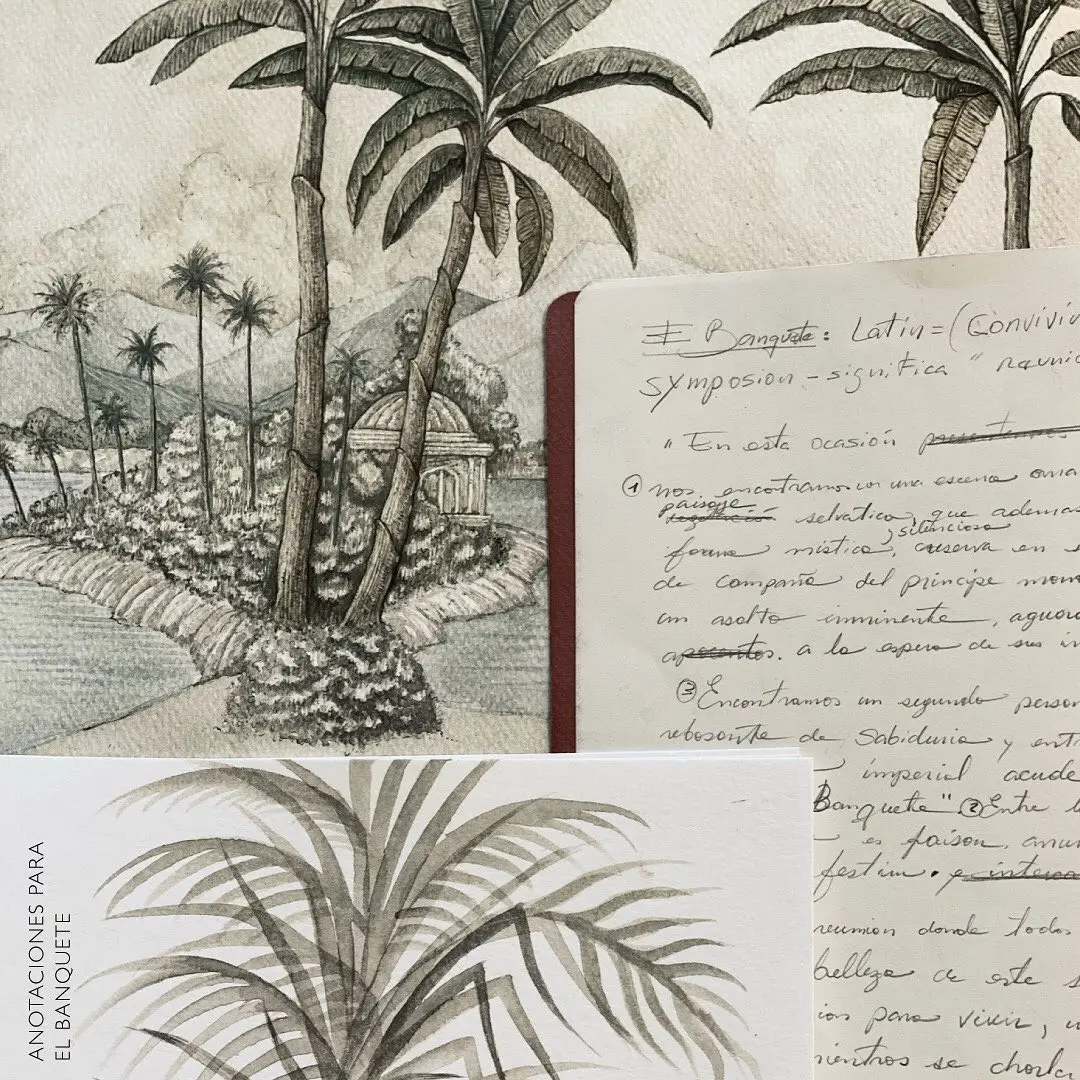 El Banquete: Latin = (Convivi
symposion - significa " reunio
" En esta ocasión
① nos encontramos con una escena
paisaje
selvático, que ademas
silenciosa
forma mística, reserva en
de campaña del príncipe
un asalto inminente,
a la espera de sus
③ Encontramos un segundo person
rebosante de Sabiduria y
imperial acude
Banquete" ② Entre
es faisan,
festin. y
reunion donde todos
belleza de este
para vivir,
mientras se charla
ANOTACIONES PARA
EL BANQUETE